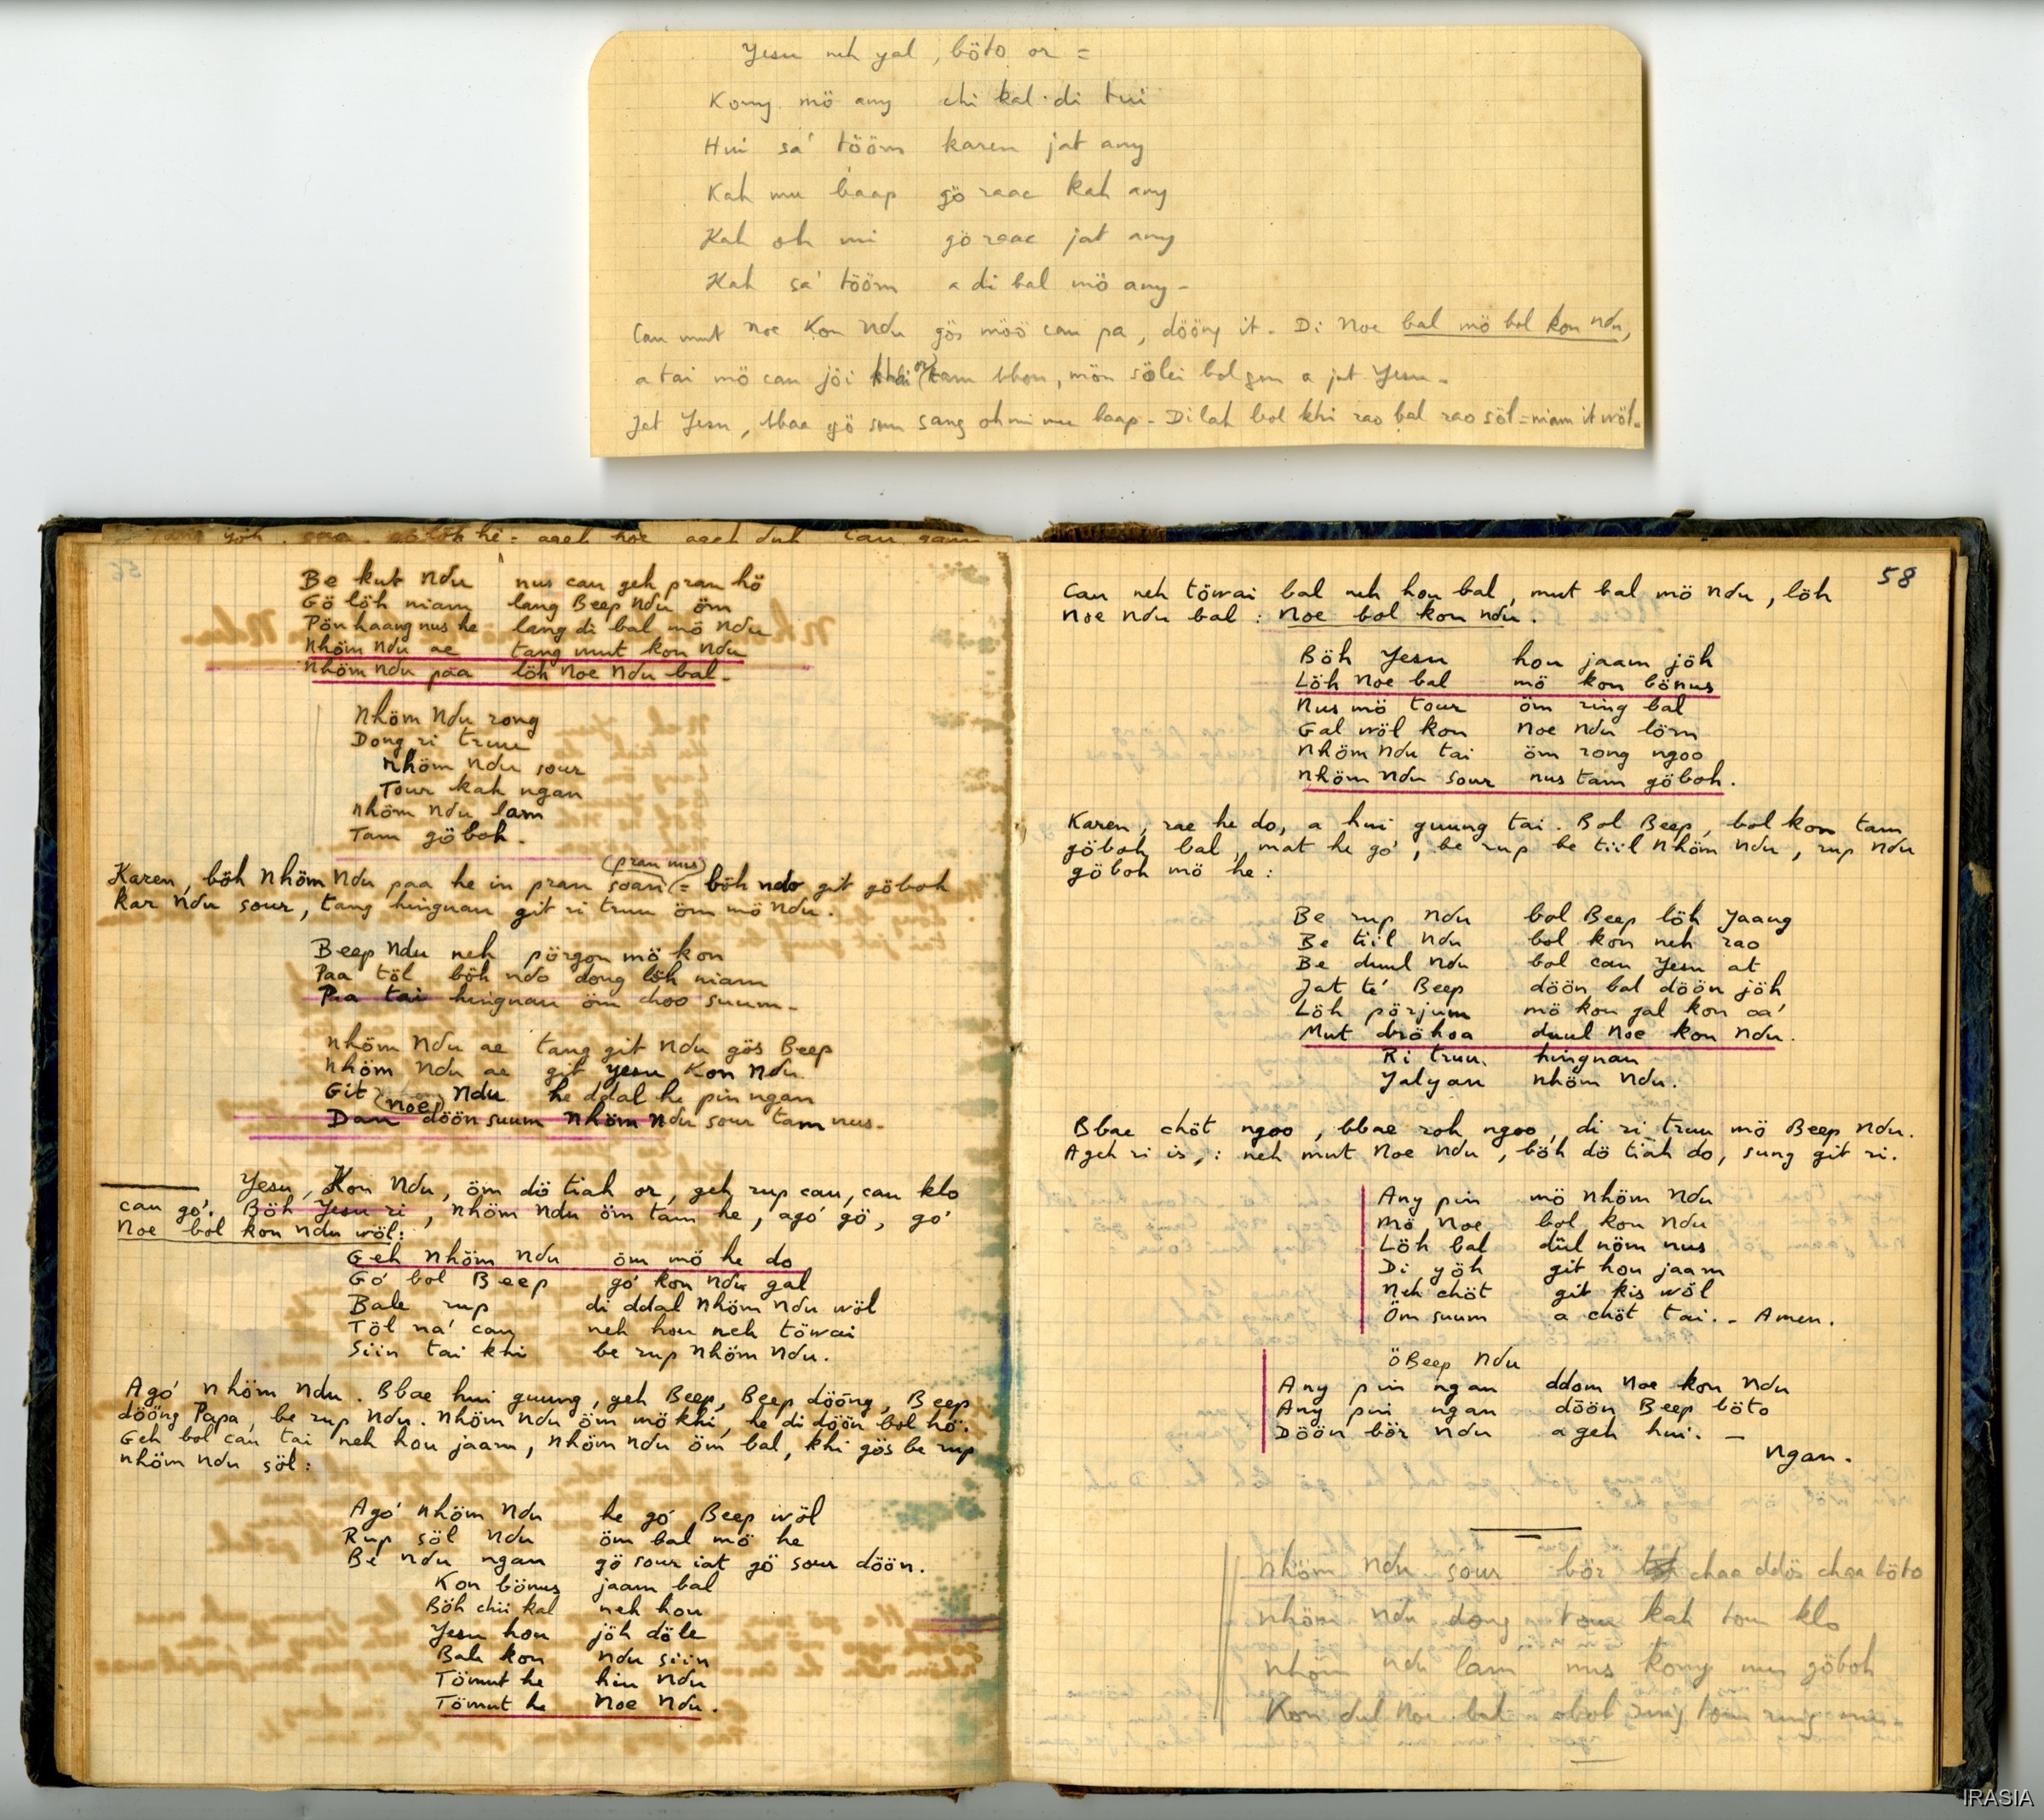 Yesu neh yal, böto or =
Kong mö any chi kal di tui
Hui sá tööm karen jat any
Kah mu baap gö raac kah any
Kah oh mi gö raac jat any
Kah sá tööm a di bal mö any -
Cau mut Noe Kon Ndu gös möö cau pa, dööng it - Di Noe bal mö bol kon ndu,
a tai mö cau jöi khai or tam bbon, mön sölei bol gen a jat Yesu -
Jat Yesu, bbaa gö sun sang oh mi mu baap - Di lah bol khi rao bal rao söl = niam it wöl -
yöh he = ageh noe ageh duh cau
Be kut Ndu nus cau geh pran hö
Gö löh niam lang Beep Ndu öm
Pön haang nus he lang di bal mö Ndu
Nhöm Ndu ae tang mut kon Ndu
Nhöm Ndu paa löh Noe Ndu bal -
Nhöm Ndu rong
Dong ri truu
Nhöm Ndu sour
Tour kah ngan
Nhöm Ndu lam
Tam göboh.
(pran nus)
Karen, böh Nhöm Ndu paa he in pran soan (= böh ndo git göboh
kar Ndu sour, tang hingnau git ri truu öm mö Ndu.
Beep Ndu neh pörgon mö kon
Paa töl böh ndo dong löh niam
Paa tai hingnau öm choo suum -
Nhöm Ndu ae tang git Ndu gös Beep
Nhöm Ndu ae git Yesu Kon Ndu
Git (noe) Ndu he ddal he pin ngan
Dan döön suum Nhöm Ndu sour tam nus -
Yesu, Kon Ndu, öm dö tiah or, geh rup cau, cau klo
cau gó. Böh Yesu ri, Nhöm Ndu öm tam he, agó gö, gó
Noe bol kon ndu wöl:
Geh Nhöm Ndu öm mö he do
Gó bol Beep gó kon ndu gal
Bale rup di ddal Nhöm Ndu wöl
Töl ná cau neh hou neh töwai
Siin tai khi be rup Nhöm Ndu.
Agó Nhöm Ndu. Bbae hui guung, geh Beep, Beep dööng, Beep
dööng Papa, be rup Ndu. Nhöm Ndu öm mö khi, he di döön bol hö.
Geh bol cau tai neh hou jaam, Nhöm Ndu öm bal, khi gös be rup
Nhöm Ndu söl:
Agó Nhöm Ndu he gó Beep wöl
Rup söl Ndu öm bal mö he
Be Ndu ngan gö sour iat gö sour döön.
Kon bönus jaam bal
Böh chii kal neh hou
Yesu hou jöh döle
Bale kon ndu siin
Tömut he hiu Ndu
Tömut he Noe Ndu.
58
Cau neh töwai bal neh hou bal, mut bal mö Ndu, löh
Noe Ndu bal: Noe bol kon ndu.
Böh Yesu hou jaam jöh
Löh Noe bal mö kon bönus
Nus mö tour öm ring bal
Gal wöl kon Noe Ndu löm
Nhöm Ndu tai öm rong ngoo
Nhöm Ndu sour nus tam göboh.
Karen, rae he do, a hui guung tai. Bol Beep, bol kon tam
göboh bal, mat he gó, be rup be tiil Nhöm Ndu, rup Ndu
göboh mö he:
Be rup Ndu bol Beep löh Yaang
Be tiil Ndu bol kon neh rao
Be duul Ndu bol cau Yesu at
Jat té Beep döön bal döön jöh
Löh pörjum mö kon gal kon oá
Mut dröhoa duul Noe kon Ndu.
Ri truu hingnau
Yalyau Nhöm Ndu.
Bbae chöt ngoo, bbae roh ngoo, di ri truu mö Beep Ndu.
Ageh ri is,: neh mut Noe Ndu, böh dö tiah do, sung git ri.
Any pin mö Nhöm Ndu
Mö Noe bol kon Ndu
Löh bal dül nöm nus
Di yöh git hou jaam
Neh chöt git kis wöl
Öm suum a chöt tai. - Amen.
ö Beep Ndu
Any pin ngan ddom Noe kon Ndu
Any pin ngan döön Beep böto
Döön bör Ndu ageh hui. -
Ngan.
Nhöm Ndu sour bör chaa ddös chaa böto
Nhöm Ndu dong tou kah tou klo
Nhöm Ndu lam nus kong nus göboh
Kon dul Noe bal abol ring tou ring
IRASIA